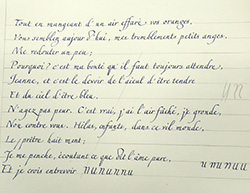 Tout en mangeant d'un air effaré vos oranges,
Vous semblez aujourd'hui, mes tremblements petits anges,
Me redouter un peu;
Pourquoi? c'est ma bonté qu'il faut toujours attendre,
Jeanne, et c'est le devoir de l'aïeul d'être tendre
Et du ciel d'être bleu.
N'ayez pas peur. C'est vrai, j'ai l'air fâché, je gronde,
Non contre vous. Hélas, enfants, dans ce vil monde,
Le prêtre hait ment;
Je me penche, écoutant ce que dit l'âme pure,
Et je crois entrevoir